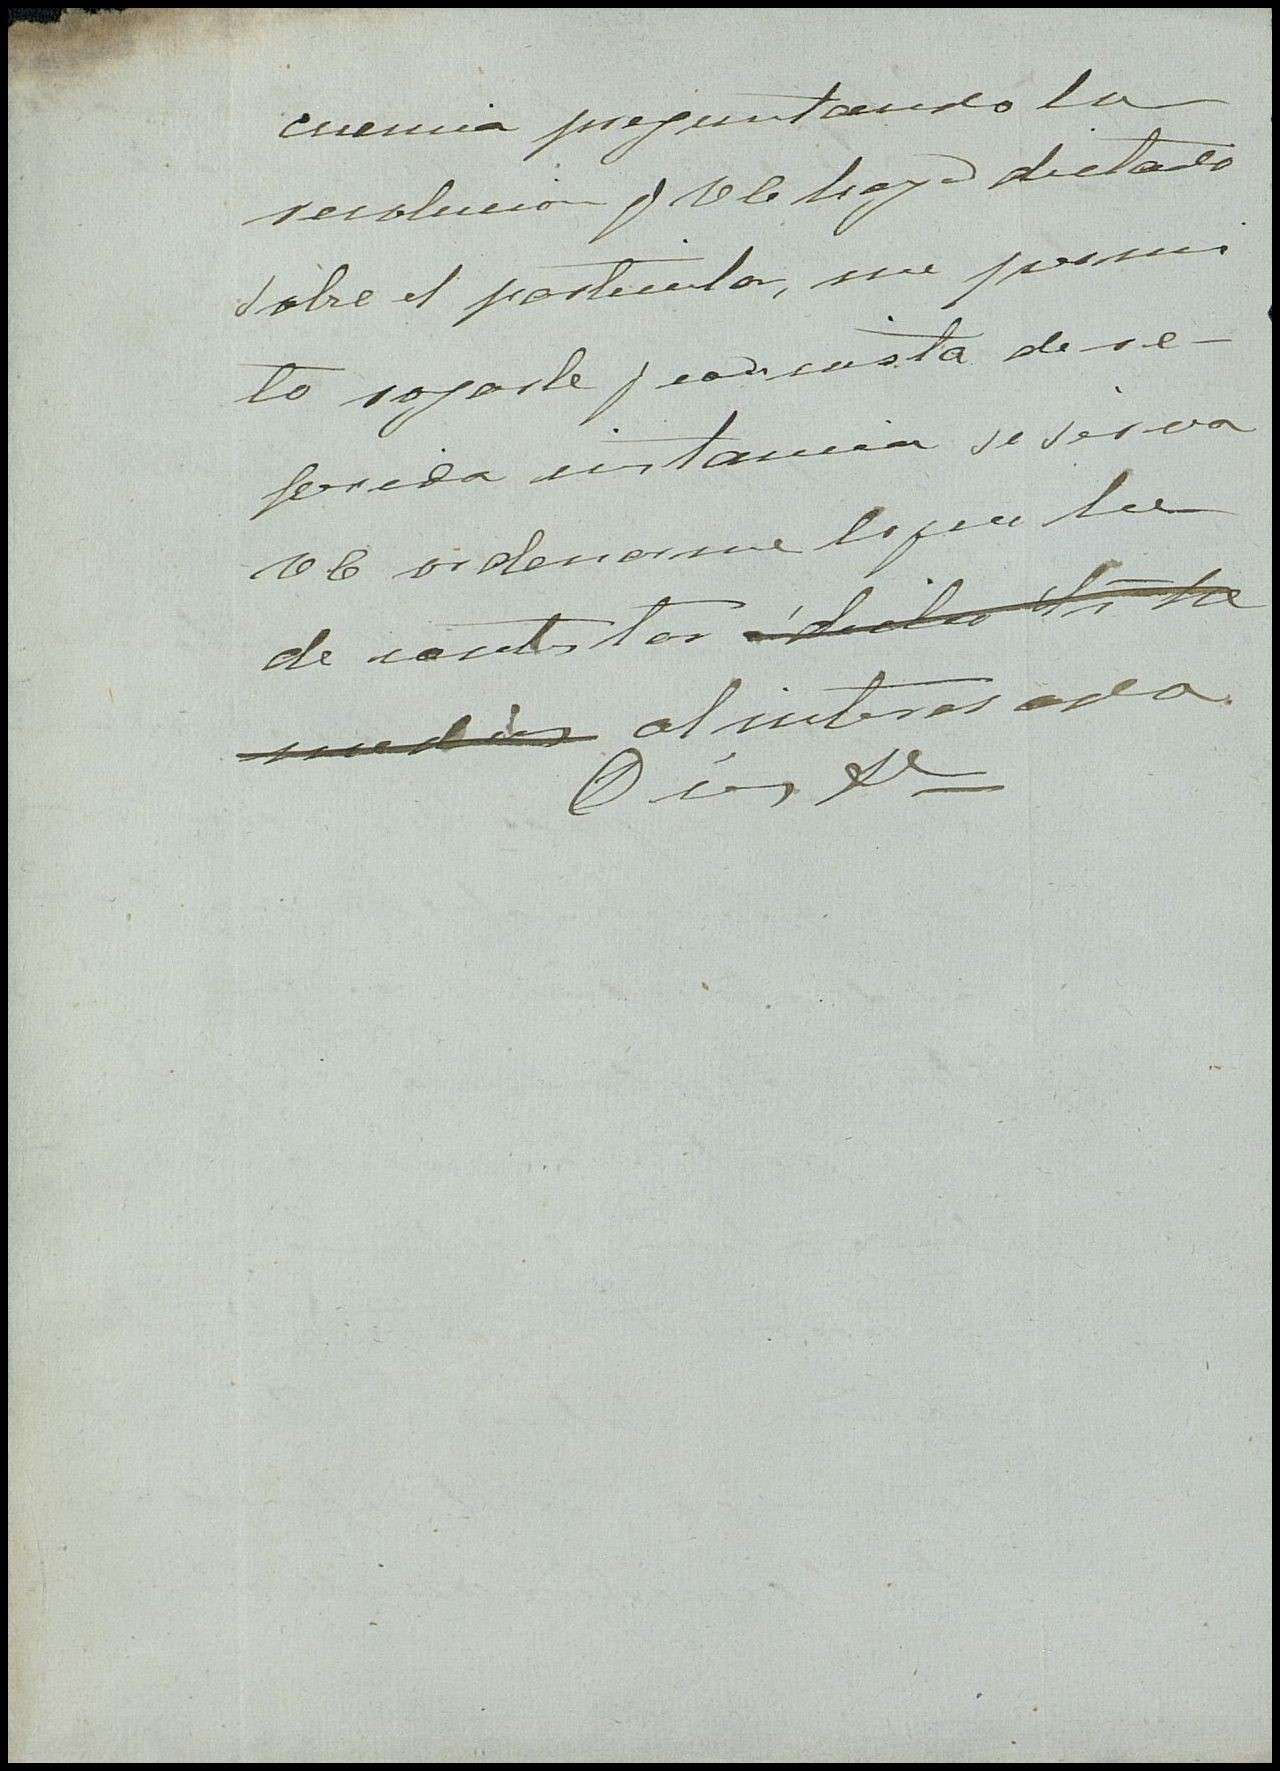 cuencia preguntando la
resolucion q VE haya dictado
sobre el particular, me permi
to rogarle q en vista de re-
ferida instancia se sirva
VE ordenarme lo que he
de contestar á dicho
al interesado
Dios &c